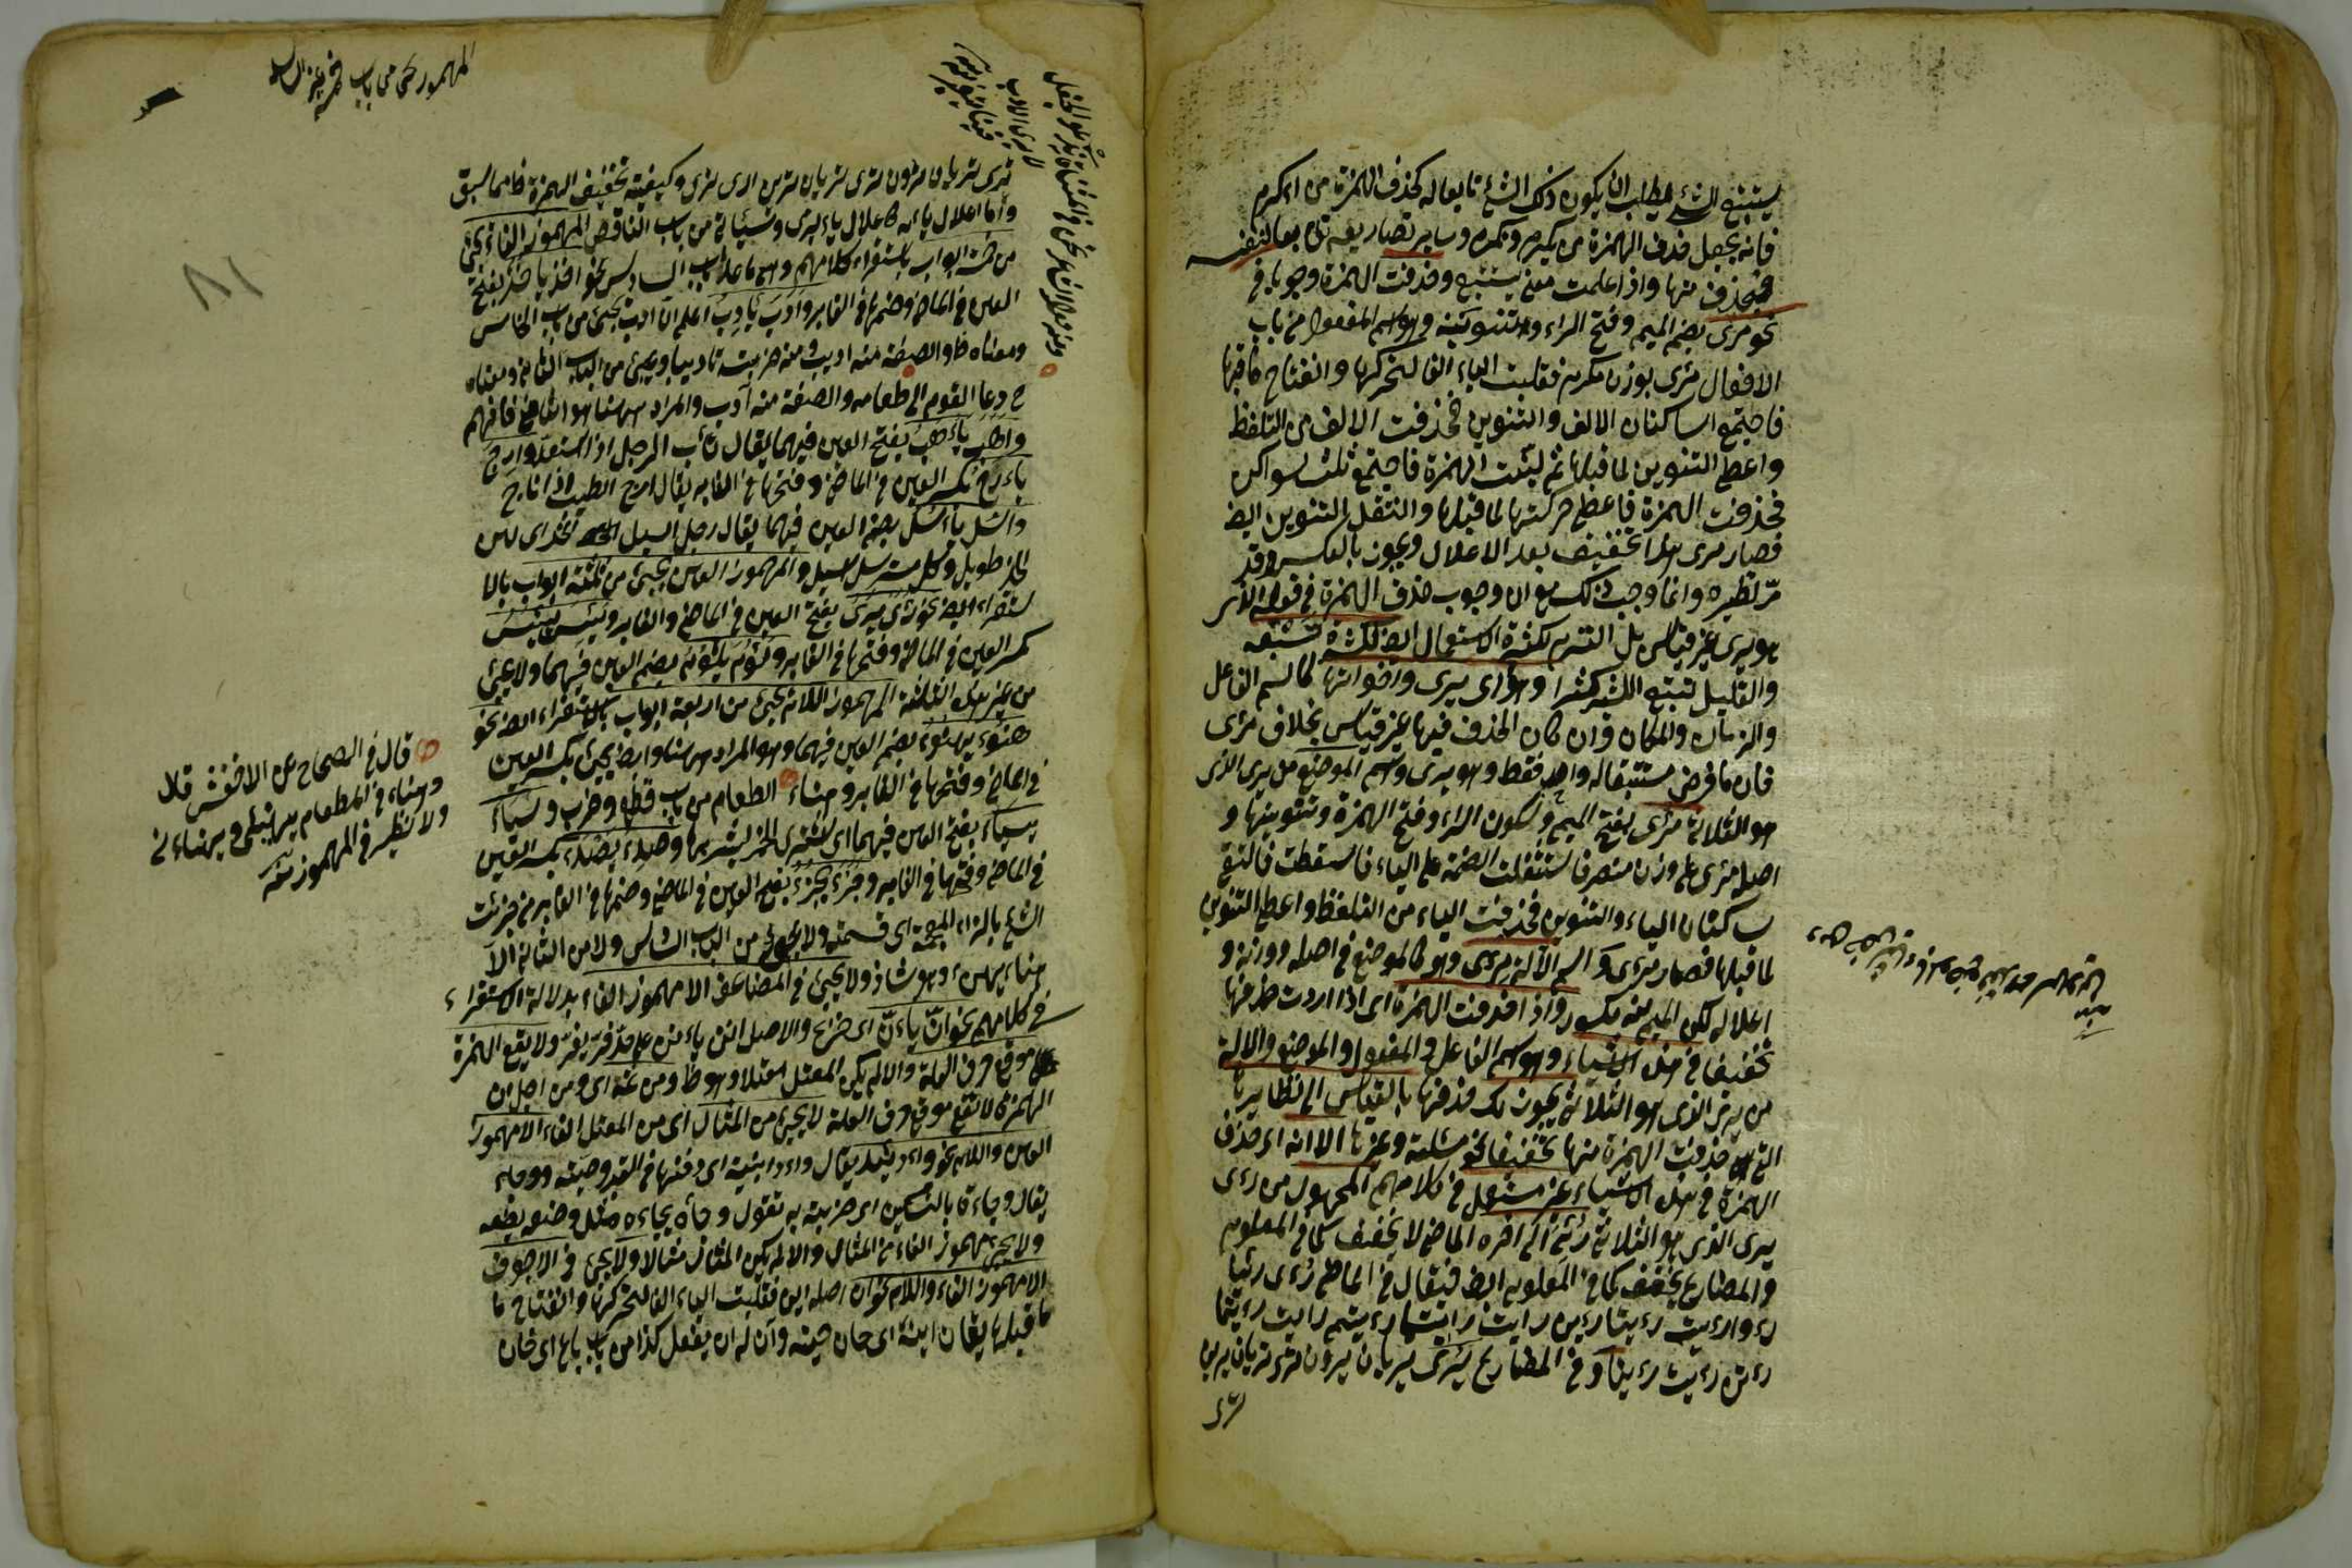 يستتبع الشئ يطلب ان يكون ذلك الشئ تابعا له كحذف الهمزة من اءكرم
فانه يجعل حذف الهمزة من يكرم ونكرم وساير تصاريفه تابعا لنفسه
فيحذف منها واذا علمت معنى يستتبع وحذفت الهمزة وجوبا في
نحو مرى بضم الميم وفتح الراء والتنوين وهو اسم المفعول من باب
الافعال مرئى بوزن مكرم فقلبت الياء الفا لتحركها وانفتاح ما قبلها
فاجتمع الساكنان الالف والتنوين فحذفت الالف من التلفظ
واعطى التنوين لما قبلها ثم لينت الهمزة فاجتمع ثلث سواكن
فحذفت الهمزة فاعطى حركتها لما قبلها وانتقل التنوين ايضا
فصار مرى هذا تخفيف بعد الاعلال ويجوز بالعكس وقد
مرّ نظيره وانما وجب ذلك مع ان وجوب حذف الهمزة في قوله الاخر
هو يرى غير قياس بل التزم لكثرة الاستعمال ايضا لكثرة مستتبعه
والقليل تتبع الكثير كثيرا وهو ارى يرى واخواتها كاسم الفاعل
والزمان والمكان وان كان الحذف فيها غير قياس بخلاف مرئى
فان ما فرض مستتبعا له واحد فقط وهو يرى واسم الموضع من يرى الذى
هو الثلاثى مرئى بفتح الميم وسكون الراء وفتح الهمزة وتنوينها و
اصله مرئى على وزن منصر فاستثقلت الضمة على الياء فاسقطت فالتقى
ساكنان الياء والتنوين فحذفت الياء من التلفظ واعطى التنوين
لما قبلها فصار مرئى واسم الآلة مرئى وهو كالموضع في اصله ووزنه و
اعلاله لكن الميم منه مكسور واذا حذفت الهمزة اى اذا اردت حذفها
تخفيفا في هذه الاشياء وهو اسم الفاعل والمفعول والموضع والالة
من يرى الذى هو الثلاثى يجوز لك حذفها بالقياس الى نظايرها
التى حذفت الهمزة منها تخفيفا نحو مسلة وغيرها الا انه اى حذف
الهمزة في هذه الاشياء غير مستعمل في كلامهم المجهول من رءى
يرى الذى هو الثلاثى رئى الى اخره الماضى لا يخفف كما في المعلوم
والمضارع يخفف كما في المعلوم ايضا فيقال في الماضى رءى رئيا
رءوا رءيت رءيتا رءين رءيت رءيتما رءيتم رءيت رءيتما
رءيتن رءيت رءينا وفي المضارع يرى يريان يرون ترى تريان يرين
ترى
المهموز يجئ من باب
ترى تريان ترون ترى تريان ترين ارى نرى وكيفية تخفيف الهمزة كما سبق
واما اعلال يائه كاعلال ياء يرمى وسيأتى من باب الناقص المهموز الفاء يجئ
من خمسة ابواب باستقراء كلامهم وهى ما عدا باب السادس نحو اخذ ياخذ بفتح
العين في الماضى وضمها في الغابر وادب يأدب اعلم ان ادب يجئ من باب الخامس
ومعناه ظ والصفة منه اديب ومنه ضربته تاديبا ويجئ من الباب الثانى ومعناه
ح دعا القوم الى طعامه والصفة منه آدب والمراد ههنا هو الثانى فافهم
واهب يأهب بفتح العين فيهما يقال تأهب الرجل اذا استعد وارج
يأرج بكسر العين في الماضى وفتحها في الغابر يقال ارج الطيب اذا فاح
واسل يأسل بضم العين فيهما يقال رجل اسيل الخد اى لين
الخد طويل وكل مسترسل اسيل والمهموز العين يجئ من ثلثة ابواب بالا
ستقراء ايضا نحو رأى يرى بفتح العين في الماضى والغابر ويئس ييئس
بكسر العين في الماضى وفتحها في الغابر ولؤم يلؤم بضم العين فيهما ولا يجئ
من غير هذه الثلثة المهموز اللام يجئ من اربعة ابواب بالاستقراء ايضا نحو
هنوء يهنوء بضم العين فيهما وهو المراد ههنا وايضا يجئ بكسر العين
في الماضى وفتحها في الغابر وهناء الطعام من باب قطع وضرب وسباء
يسباء بفتح العين فيهما اى اشترى الخمر ليشربها وصدئ يصدء بكسر العين
في الماضى وفتحها في الغابر وجزء يجزء بفتح العين في الماضى وضمها في الغابر من جزئت
الشئ بالزاء المعجمة اى قسمته ولا يجئ من الباب السادس ولا من الثانى الا
هناء يهنئ وهو شاذ ولا يجئ في المضاعف الا مهموز الفاء بدلالة الاستقراء
في كلامهم نحو انّ يأنّ اى ضرع والاصل انن يأنن على حدّ فرّ يفرّ ولا يقع الهمزة
موقع حرف العلة والا لم يكن المعتل معتلا وهو ظ ومن ثمة اى ومن اجل ان
الهمزة لا تقع موقع حرف العلة لا يجئ من المثال اى من المعتل الفاء الا مهموز
العين واللام نحو واد يئد يقال واد ابنته اى دفنها في القبر وهى حية ووجاء
يقال وجاءة بالسكين اى ضربته به تقول وجأه يجاءه مثل وضعه يضعه
ولا يجئ مهموز الفاء من المثال والا لم يكن المثال مثالا ولا يجئ في الاجوف
الا مهموز الفاء واللام نحو آن اصله اين فقلبت الياء الفا لتحركها وانفتاح ما
ما قبلها يقان اينه اى حان حينه وآن له ان يفعل كذا من باب باع اى حان
قال في الصحاح عن الاخفش قال
وهناء في الطعام يهنئنى ويهناءنى
ولا نظير في المهموز منه